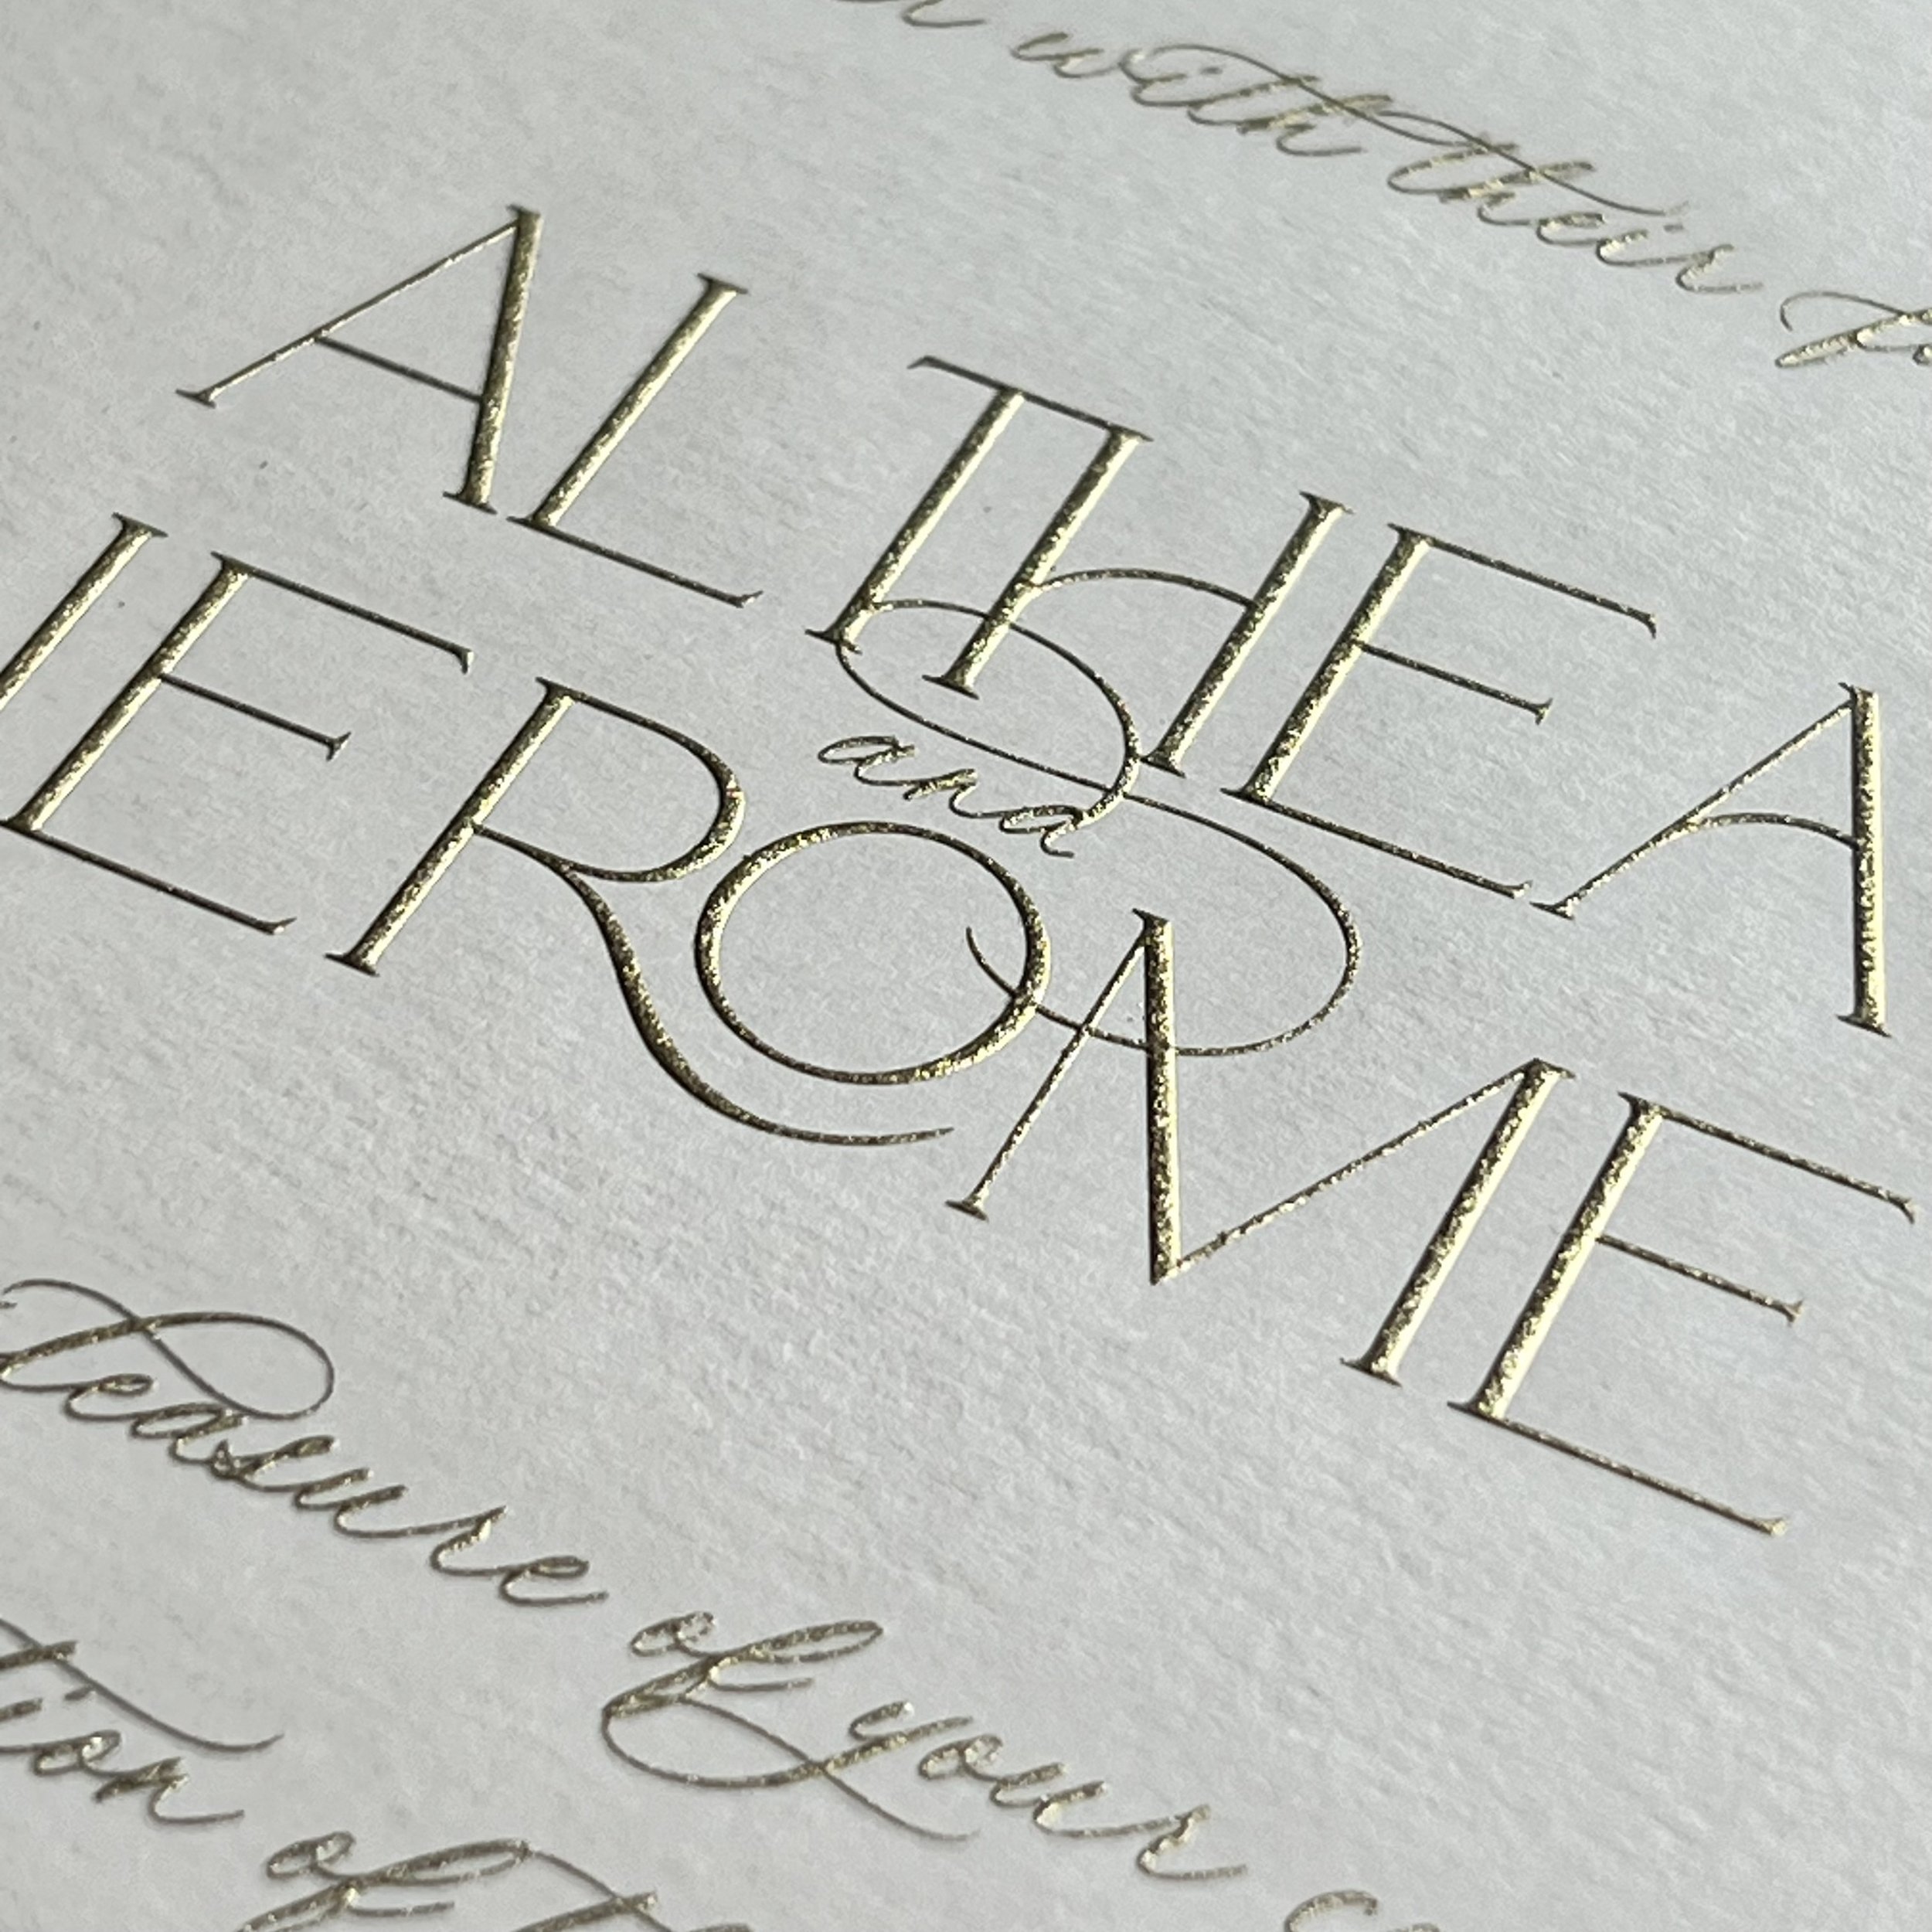 with their
ALTHEA
and
JEROME
pleasure of your
of